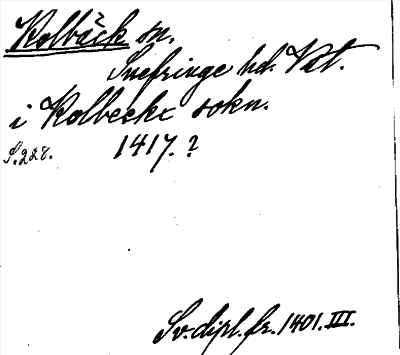 Kolbäck sn.
Snefringe hd. Vstm.
i Kolbecks sokn.
S.228. 1417.?
Sv. dipl. fr. 1401. III.